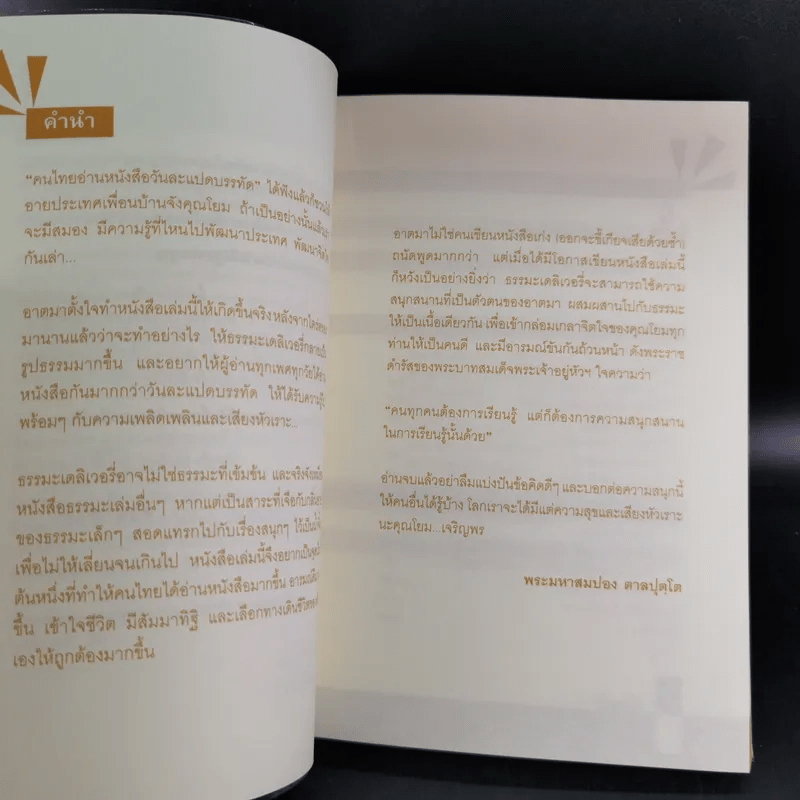 คำนำ
"คนไทยอ่านหนังสือวันละแปดบรรทัด" ได้ฟังแล้วก็ชวนให้
อายประเทศเพื่อนบ้านจังคุณโยม ถ้าเป็นอย่างนั้นแล้ว
จะมีสมอง มีความรู้ที่ไหนไปพัฒนาประเทศ พัฒนา
กันเล่า...
อาตมาตั้งใจทำหนังสือเล่มนี้ให้เกิดขึ้นจริงหลังจาก
มานานแล้วว่าจะทำอย่างไร ให้ธรรมะเดลิเวอรี่กลายเป็น
รูปธรรมมากขึ้น และอยากให้ผู้อ่านทุกเพศทุกวัยได้อ่าน
หนังสือกันมากกว่าวันละแปดบรรทัด ให้ได้รับความรู้
พร้อมๆ กับความเพลิดเพลินและเสียงหัวเราะ...
ธรรมะเดลิเวอรี่อาจไม่ใช่ธรรมะที่เข้มข้น และจริงจัง
หนังสือธรรมะเล่มอื่นๆ หากแต่เป็นสาระที่เจือกับ
ของธรรมะเล็กๆ สอดแทรกไปกับเรื่องสนุกๆ ไว้เป็น
เพื่อไม่ให้เลี่ยนจนเกินไป หนังสือเล่มนี้จึงอยากเป็น
ต้นหนึ่งที่ทำให้คนไทยได้อ่านหนังสือมากขึ้น อารมณ์
ขึ้น เข้าใจชีวิต มีสัมมาทิฐิ และเลือกทางเดินชีวิต
เองให้ถูกต้องมากขึ้น
อาตมาไม่ใช่คนเขียนหนังสือเก่ง (ออกจะขี้เกียจเสียด้วยซ้ำ)
ถนัดพูดมากกว่า แต่เมื่อได้มีโอกาสเขียนหนังสือเล่มนี้
ก็หวังเป็นอย่างยิ่งว่า ธรรมะเดลิเวอรี่จะสามารถใช้ความ
สนุกสนานที่เป็นตัวตนของอาตมา ผสมผสานไปกับธรรมะ
ให้เป็นเนื้อเดียวกัน เพื่อเข้ากล่อมเกลาจิตใจของคุณโยมทุก
ท่านให้เป็นคนดี และมีอารมณ์ขันกันถ้วนหน้า ดังพระราช
ดำรัสของพระบาทสมเด็จพระเจ้าอยู่หัวฯ ใจความว่า
"คนทุกคนต้องการเรียนรู้ แต่ก็ต้องการความสนุกสนาน
ในการเรียนรู้นั้นด้วย"
อ่านจบแล้วอย่าลืมแบ่งปันข้อคิดดีๆ และบอกต่อความสุขนี้
ให้คนอื่นได้รู้บ้าง โลกเราจะได้มีแต่ความสุขและเสียงหัวเราะ
นะคุณโยม...เจริญพร
พระมหาสมปอง ตาลปุตฺโต